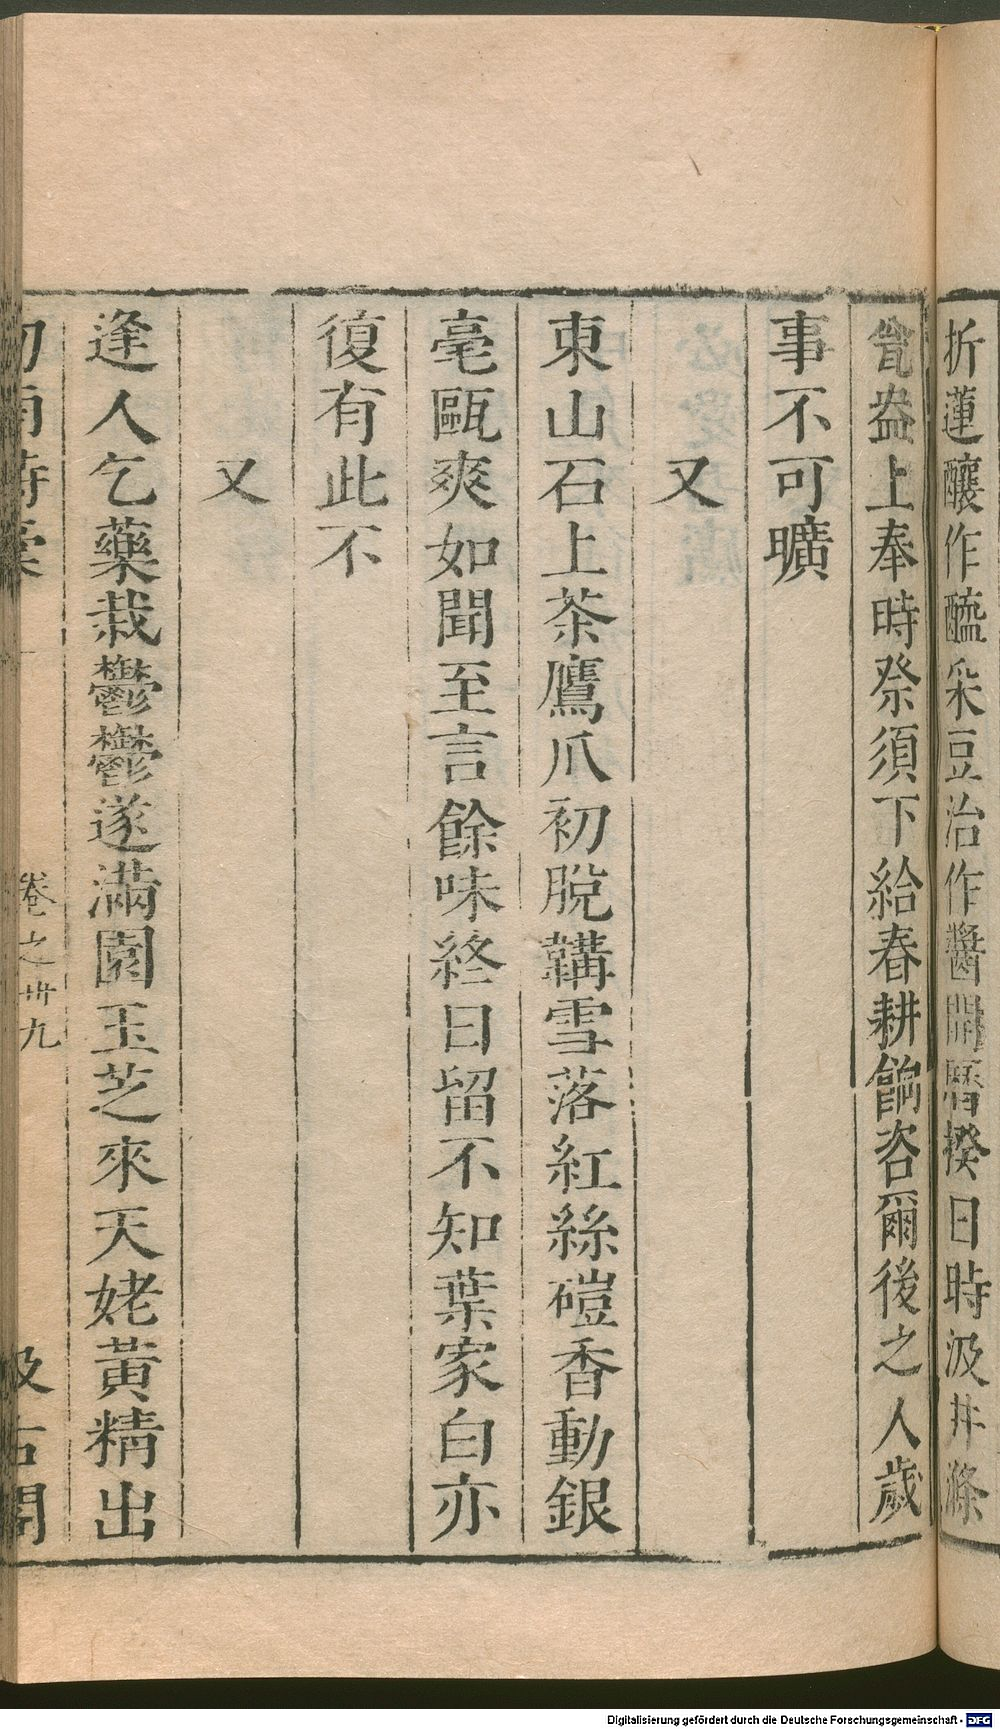 折蓮釀作醯采豆治作醬開曆揆日時汲井滌
瓮盎上奉時祭須下給春耕餉咨爾後之人歲
事不可曠
又
東山石上茶鷹爪初脫韝雪落紅絲磑香動銀
毫甌爽如聞至言餘味終日留不知葉家白亦
復有此不
又
逢人乞藥栽鬱鬱遂滿園玉芝來天姥黃精出
卷之卅九
Digitalisierung gefördert durch die Deutsche Forschungsgemeinschaft - DFG